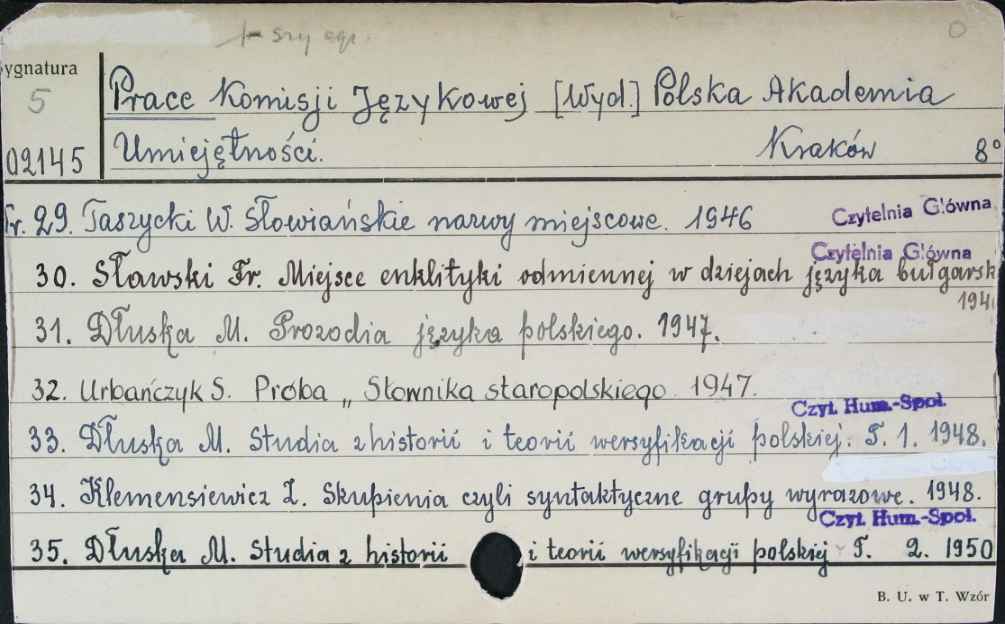 szy egz.
0
ygnatura
5
02145
Prace Komisji Językowej [Wyd.] Polska Akademia
Umiejętności. Kraków 8°
Nr. 29. Taszycki W. Słowiańskie nazwy miejscowe. 1946 Czytelnia Główna
Czytelnia Główna
30. Sławski Fr. Miejsce enklityki odmiennej w dziejach języka bułgarsk
194
31. Dłuska M. Prozodia języka polskiego. 1947.
32. Urbańczyk S. Próba „Słownika staropolskiego. 1947.
Czyt. Hum.-Społ.
33. Dłuska M. Studia z historii i teorii wersyfikacji polskiej. T. 1. 1948.
34. Klemensiewicz Z. Skupienia czyli syntaktyczne grupy wyrazowe. 1948.
Czyt. Hum.-Społ.
35. Dłuska M. Studia z historii i teorii wersyfikacji polskiej T. 2. 1950
B. U. w T. Wzór